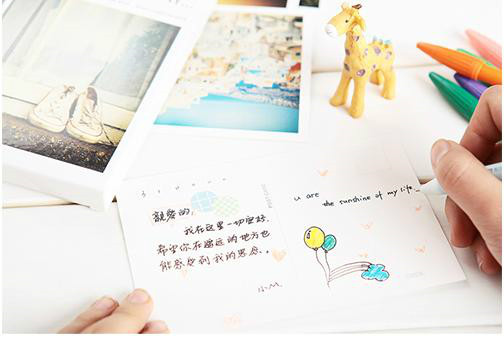 親爱的,
我在这里一切安好.
希望你在遥远的地方也
能感受到我的思念.
小M.
u are
the sunshine of my life.